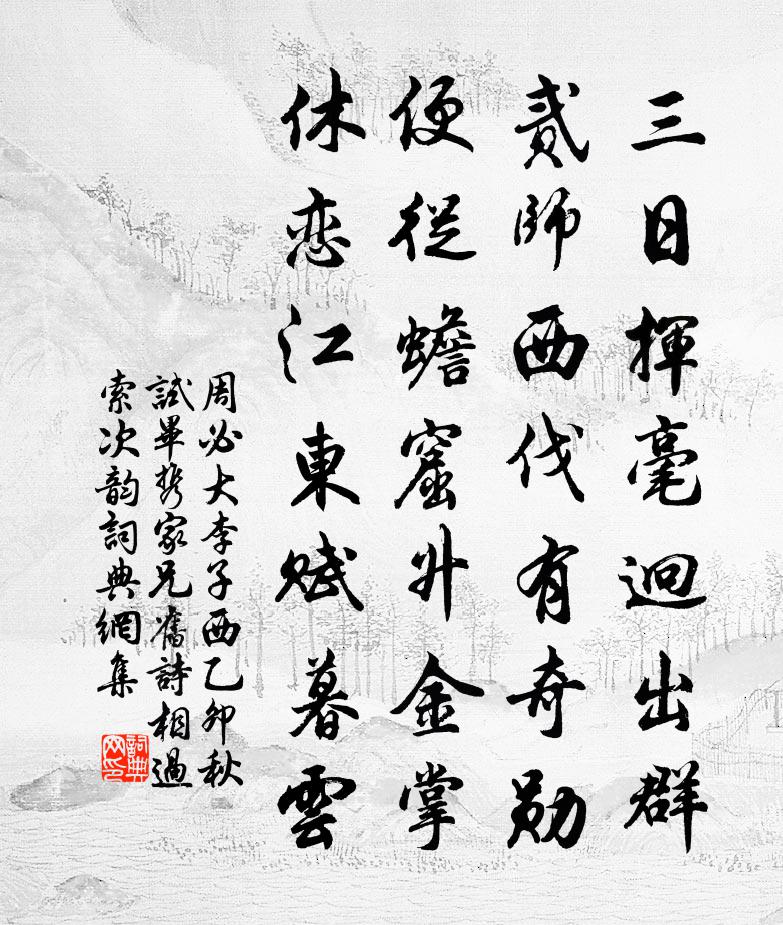 三日揮毫迥出群
貳師西伐有奇勛
便從蟾窟升金掌
休恋江東賦暮雲
周必大李子西乙卯秋
試畢携家兄舊詩相過
索次韵詞典網集
詞典网印